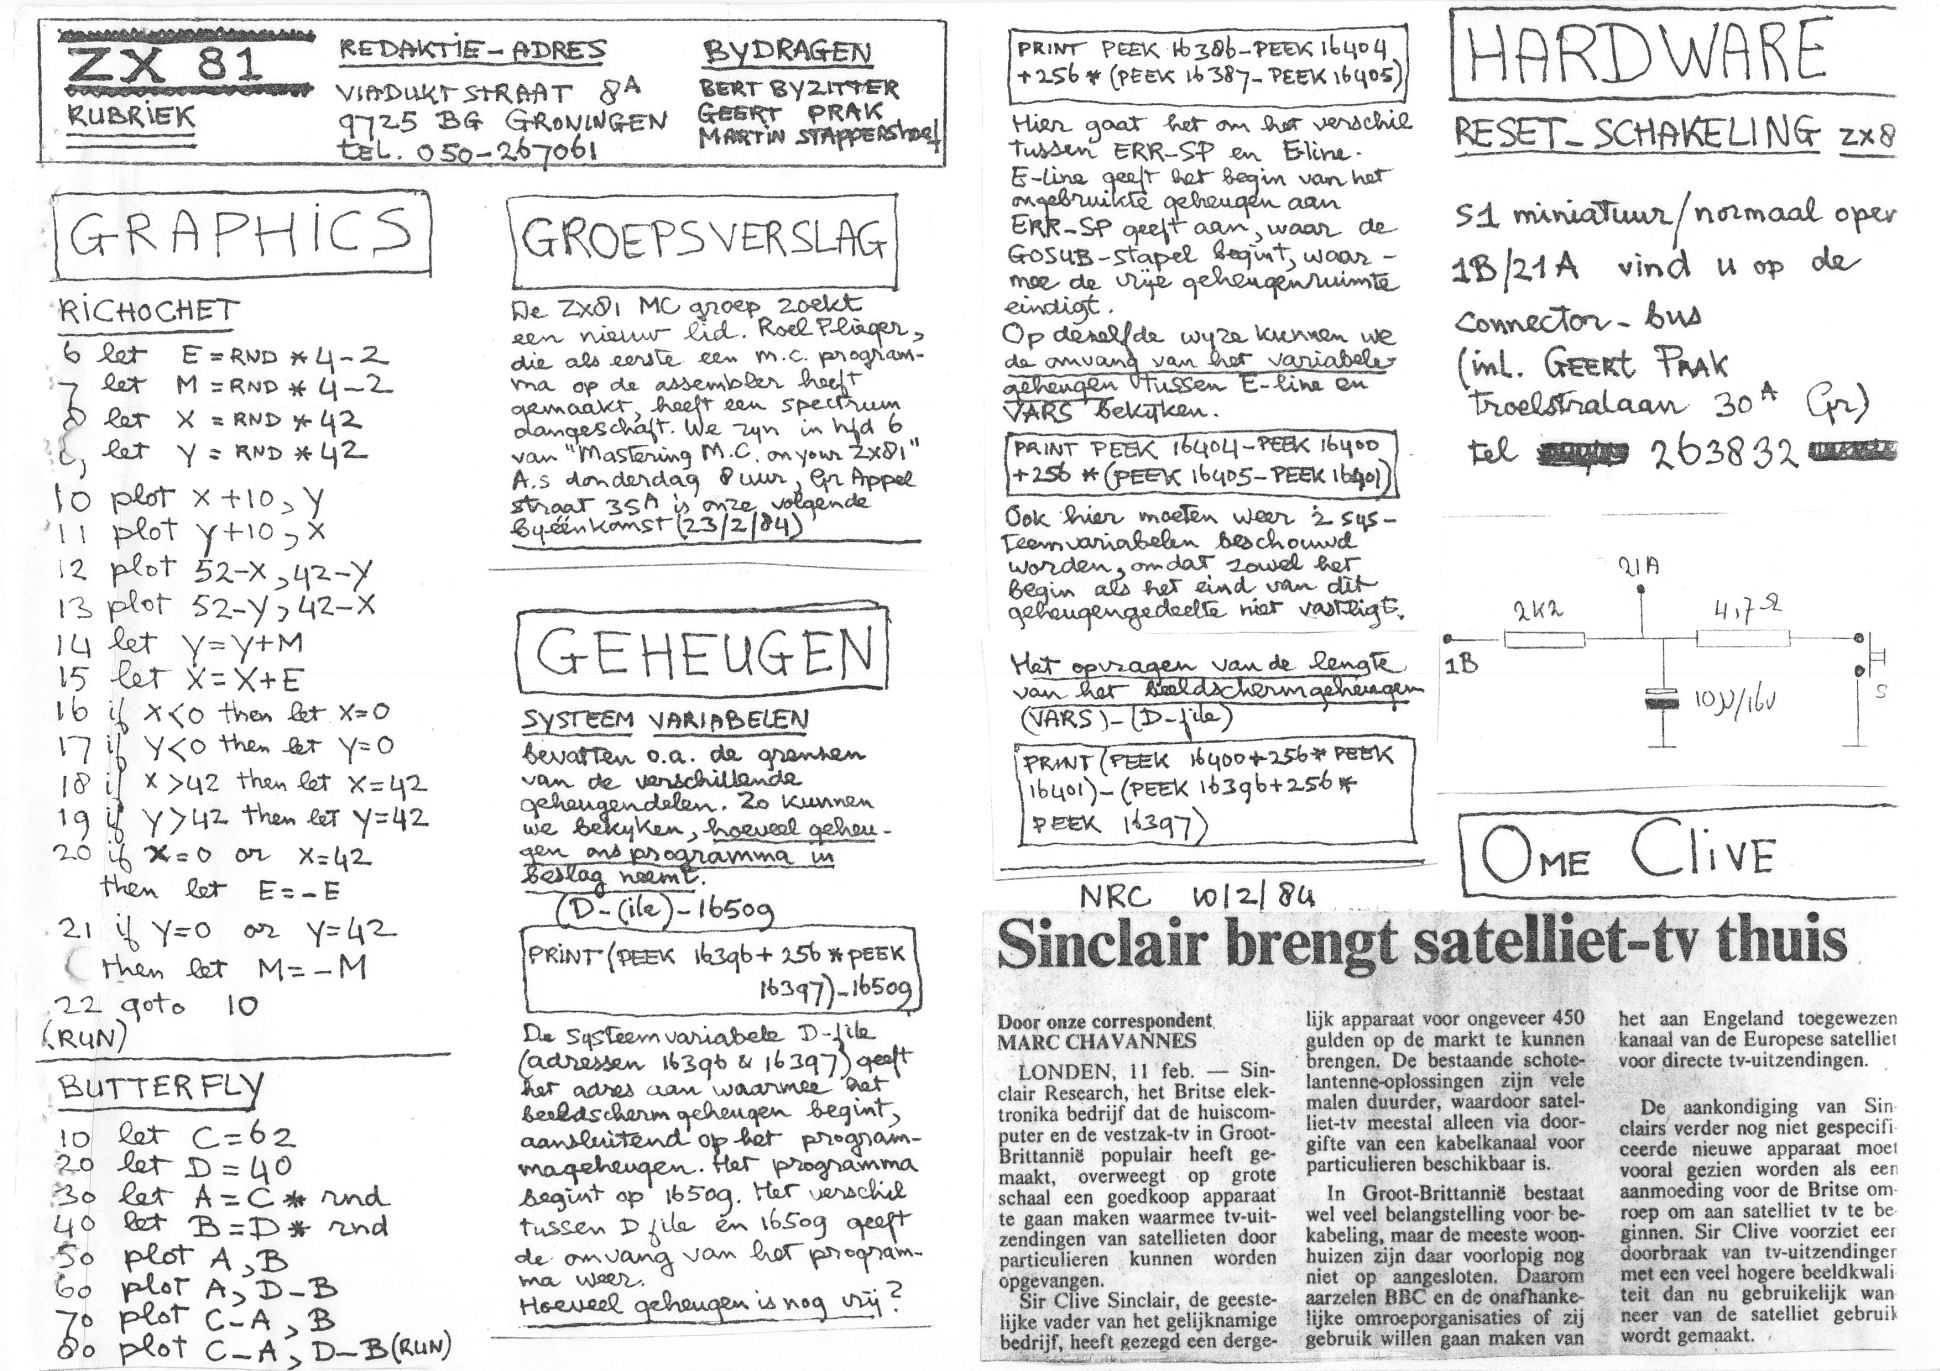 ZX 81
RUBRIEK
REDAKTIE-ADRES
VIADUKTSTRAAT 8A
9725 BG GRONINGEN
tEL. 050-267061
BYDRAGEN
BERT BYZITTER
GEERT PRAK
MARTIN STAPPERSHOEF
GRAPHICS
RICHOCHET
6 let E = RND * 4-2
7 let M = RND * 4-2
8 let X = RND * 42
9 let Y = RND * 42
10 plot X+10, Y
11 plot Y+10, X
12 plot 52-X, 42-Y
13 plot 52-Y, 42-X
14 let Y=Y+M
15 let X=X+E
16 if X<0 then let X=0
17 if Y<0 then let Y=0
18 if X>42 then let X=42
19 if Y>42 then let Y=42
20 if X=0 or X=42
then let E=-E
21 if Y=0 or Y=42
then let M=-M
22 goto 10
(RUN)
BUTTERFLY
10 let C=62
20 let D=40
30 let A=C* rnd
40 let B=D* rnd
50 plot A,B
60 plot A,D-B
70 plot C-A,B
80 plot C-A,D-B(RUN)
GROEPSVERSLAG
De ZX81 MC groep zoekt
een nieuw lid. Roel Plieger,
die als eerste een m.c. program-
ma op de assembler heeft
gemaakt, heeft een spectrum
aangeschaft. We zyn in hfd 6
van "Mastering M.C. on your ZX81"
A.s donderdag 8 uur, Gr Appel
straat 35A is onze volgende
byéénkomst (23/2/84)
GEHEUGEN
SYSTEEM VARIABELEN
bevatten o.a. de grenzen
van de verschillende
geheugendelen. Zo kunnen
we bekyken, hoeveel geheu-
gen ons programma in
beslag neemt.
(D-file)-16509
PRINT (PEEK 16396+256*PEEK
16397)-16509
De systeemvariabele D-file
(adressen 16396 & 16397) geeft
het adres aan waarmee het
beeldschermgeheugen begint,
aansluitend op het program-
mageheugen. Het programma
begint op 16509. Het verschil
tussen D file en 16509 geeft
de omvang van het program-
ma weer.
Hoeveel geheugen is nog vrij?
PRINT PEEK 16386-PEEK 16404
+256*(PEEK 16387-PEEK 16405)
Hier gaat het om het verschil
tussen ERR-SP en E-line.
E-line geeft het begin van het
ongebruikte geheugen aan
ERR-SP geeft aan, waar de
GOSUB-stapel begint, waar-
mee de vrije geheugenruimte
eindigt.
Op dezelfde wyze kunnen we
de omvang van het variabele-
geheugen tussen E-line en
VARS bekijken.
PRINT PEEK 16404-PEEK 16400
+256*(PEEK 16405-PEEK 16401)
Ook hier moeten weer 2 sys-
teemvariabelen beschouwd
worden, omdat zowel het
begin als het eind van dit
geheugengedeelte niet vastligt.
Het opvragen van de lengte
van het beeldschermgeheugen
(VARS)-(D-file)
PRINT(PEEK 16400+256*PEEK
16401)-(PEEK 16396+256*
PEEK 16397)
HARDWARE
RESET-SCHAKELING ZX8
S1 miniatuur/normaal open
1B/21A vind u op de
connector-bus
(inl. GEERT PRAK
Troelstralaan 30A (Gr)
tel 263832
21A
2K2
4,7Ω
1B
10µ/16V
S
OME CLIVE
NRC 10/2/84
Sinclair brengt satelliet-tv thuis
Door onze correspondent
MARC CHAVANNES
LONDEN, 11 feb. — Sin-
clair Research, het Britse elek-
tronika bedrijf dat de huiscom-
puter en de vestzak-tv in Groot-
Brittannië populair heeft ge-
maakt, overweegt op grote
schaal een goedkoop apparaat
te gaan maken waarmee tv-uit-
zendingen van satellieten door
particulieren kunnen worden
opgevangen.
Sir Clive Sinclair, de geeste-
lijke vader van het gelijknamige
bedrijf, heeft gezegd een derge-
lijk apparaat voor ongeveer 450
gulden op de markt te kunnen
brengen. De bestaande schote-
lantenne-oplossingen zijn vele
malen duurder, waardoor satel-
liet-tv meestal alleen via door-
gifte van een kabelkanaal voor
particulieren beschikbaar is.
In Groot-Brittannië bestaat
wel veel belangstelling voor be-
kabeling, maar de meeste woon-
huizen zijn daar voorlopig nog
niet op aangesloten. Daarom
aarzelen BBC en de onafhanke-
lijke omroeporganisaties of zij
gebruik willen gaan maken van
het aan Engeland toegewezen
kanaal van de Europese satelliet
voor directe tv-uitzendingen.
De aankondiging van Sin-
clairs verder nog niet gespecifi-
ceerde nieuwe apparaat moet
vooral gezien worden als een
aanmoediging voor de Britse om-
roep om aan satelliet tv te be-
ginnen. Sir Clive voorziet een
doorbraak van tv-uitzendingen
met een veel hogere beeldkwali-
teit dan nu gebruikelijk wan-
neer van de satelliet gebruik
wordt gemaakt.